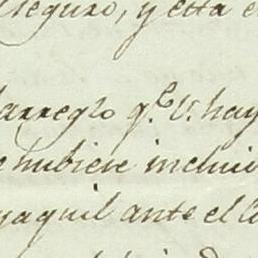 seguro, y esta e
arreglo q.e V. hay
e hubiese inclui
yaquil ante el C